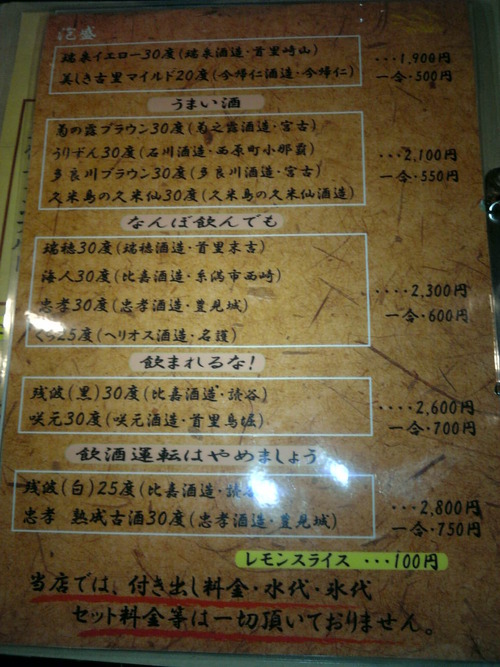 泡盛
瑞泉イエロー30度(瑞泉酒造・首里崎山)
・・・1,900円
美しき古里マイルド20度(今帰仁酒造・今帰仁)
一合・500円
うまい酒
菊の露ブラウン30度(菊之露酒造・宮古)
うりずん30度(石川酒造・西原町小那覇)
・・・2,100円
多良川ブラウン30度(多良川酒造・宮古)
一合・550円
久米島の久米仙30度(久米島の久米仙酒造)
なんぼ飲んでも
瑞穂30度(瑞穂酒造・首里末吉)
海人30度(比嘉酒造・糸満市西崎)
・・・・2,300円
忠孝30度(忠孝酒造・豊見城)
一合・600円
くら25度(ヘリオス酒造・名護)
飲まれるな!
残波(黒)30度(比嘉酒造・読谷)
・・・・2,600円
咲元30度(咲元酒造・首里鳥堀)
一合・700円
飲酒運転はやめましょう
残波(白)25度(比嘉酒造・読谷)
・・・2,800円
忠孝 熟成古酒30度(忠孝酒造・豊見城)
一合・750円
レモンスライス ・・・100円
当店では、付き出し料金・水代・氷代
セット料金等は一切頂いておりません。